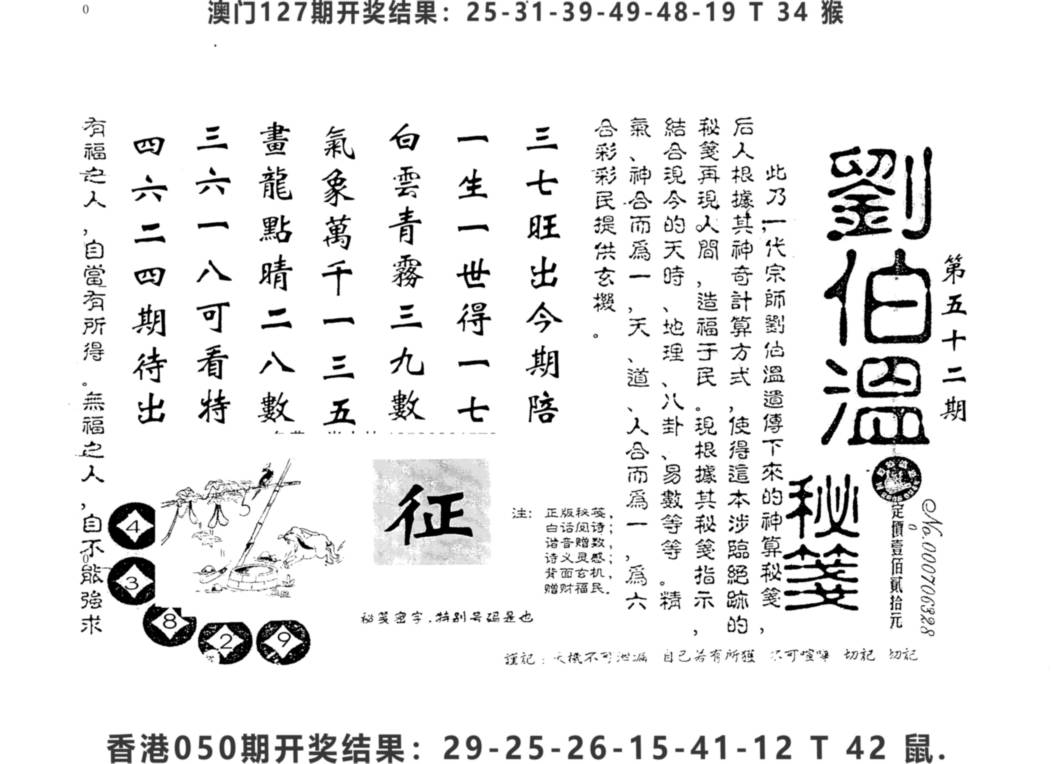 澳门127期开奖结果：25-31-39-49-48-19 T 34 猴
第五十二期
劉伯溫
秘箋
No.000706328
定價壹佰貳拾元
此乃一代宗師劉伯溫遺傳下來的神算秘箋，
后人根據其神奇計算方式，使得這本涉臨絕跡的
秘箋再現人間，造福于民。現根據其秘箋指示，
結合現今的天時、地理、八卦、易數等等。精
氣、神合而爲一，天、道、人合而爲一，爲六
合彩彩民提供玄機。
三七旺出今期陪
一生一世得一七
白雲青霧三九數
氣象萬千一三五
畫龍點晴二八數
三六一八可看特
四六二四期待出
有福之人，自當有所得。無福之人，自不能強求
4
3
8
2
9
征
秘箋密字，特别号码是也
注：正版秘笺，
白话阅诗；
谐音赠数，
诗义灵感；
背面玄机，
赠财福民。
謹記：天機不可泄漏 自己若有所獲 不可喧嘩 切記 切記
香港050期开奖结果：29-25-26-15-41-12 T 42 鼠.